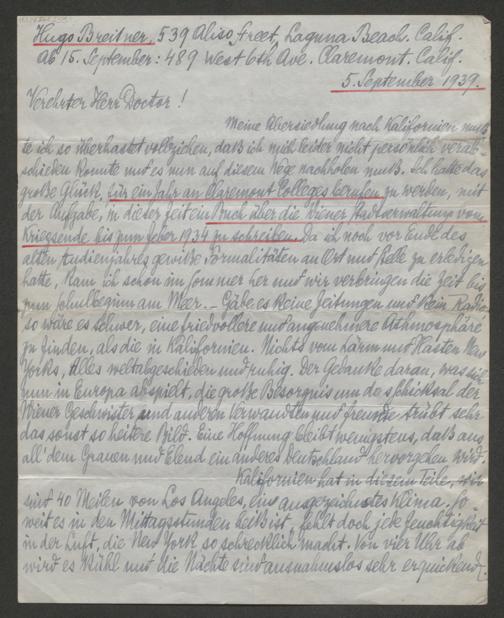 Hugo Breitner, 539 Aliso Street, Laguna Beach. Calif.
Ab 15. September: 489 West 6th Ave. Claremont. Calif.
5. September 1939.
Verehrter Herr Doctor!
Meine Übersiedlung nach Kalifornien muß-
te ich so überhastet vollziehen, daß ich mich leider nicht persönlich verab-
schieden konnte und es nun auf diesem Wege nachholen muß. Ich hatte das
große Glück, für ein Jahr an Claremont Colleges berufen zu werden, mit
der Aufgabe, in dieser Zeit ein Buch über die Wiener Stadtverwaltung vom
Kriegsende bis zum Feber 1934 zu schreiben. Da ich noch vor Ende des
alten Studienjahres gewiße Formalitäten an Ort und Stelle zu erledigen
hatte, kam ich schon im Sommer her und wir verbringen die Zeit bis
zum Schulbeginn am Meer. – Gäbe es keine Zeitungen und kein Radio,
so wäre es schwer, eine friedvollere und angenehmere Athmosphäre
zu finden, als die in Kalifornien. Nichts vom Lärm und Hasten New
Yorks, alles weltabgeschieden und ruhig. Der Gedanke daran, was sich
nun in Europa abspielt, die große Besorgnis um das Schicksal der
Wiener Geschwister und anderen Verwandten und Freunde trübt sehr
das sonst so heitere Bild. Eine Hoffnung bleibt wenigstens, daß aus
all' dem Grauen und Elend ein anderes Deutschland hervorgehen wird.
Kalifornien hat in diesem Teile, wir
sind 40 Meilen von Los Angeles, ein ausgezeichnetes Klima. So
weit es in den Mittagsstunden heiß ist, fehlt doch jede Feuchtigkeit
in der Luft, die New York so schrecklich macht. Von vier Uhr ab
wird es kühl und die Nächte sind ausnahmslos sehr erquickend.